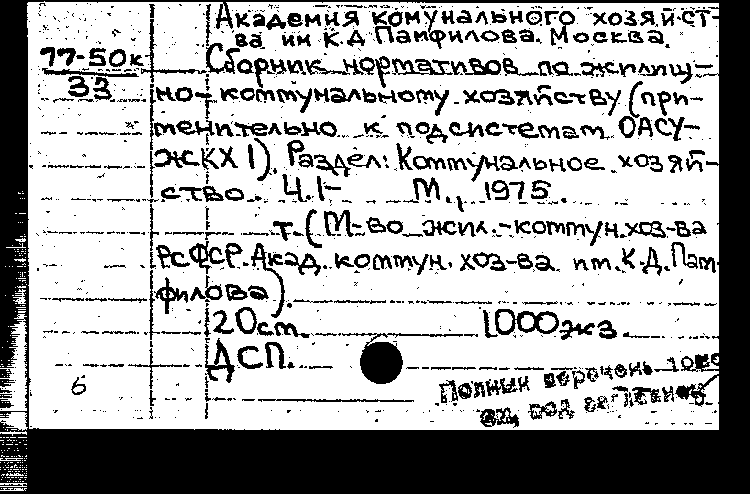 Академия комунального хозяйст-
ва им К.Д Памфилова. Москва.
77-50к
33
Сборник нормативов по жилищ-
но-коммунальному хозяйству (при-
менительно к подсистемам ОАСУ-
ЖКХ 1). Раздел: Коммунальное хозяй-
ство. Ч.1- М., 1975.
т. (М-во жил.-коммун.хоз-ва
РСФСР. Акад. коммун. хоз-ва им. К.Д. Пам-
филова).
20см. 1000экз.
ДСП.
6
Полный перечень
см. под заглавием